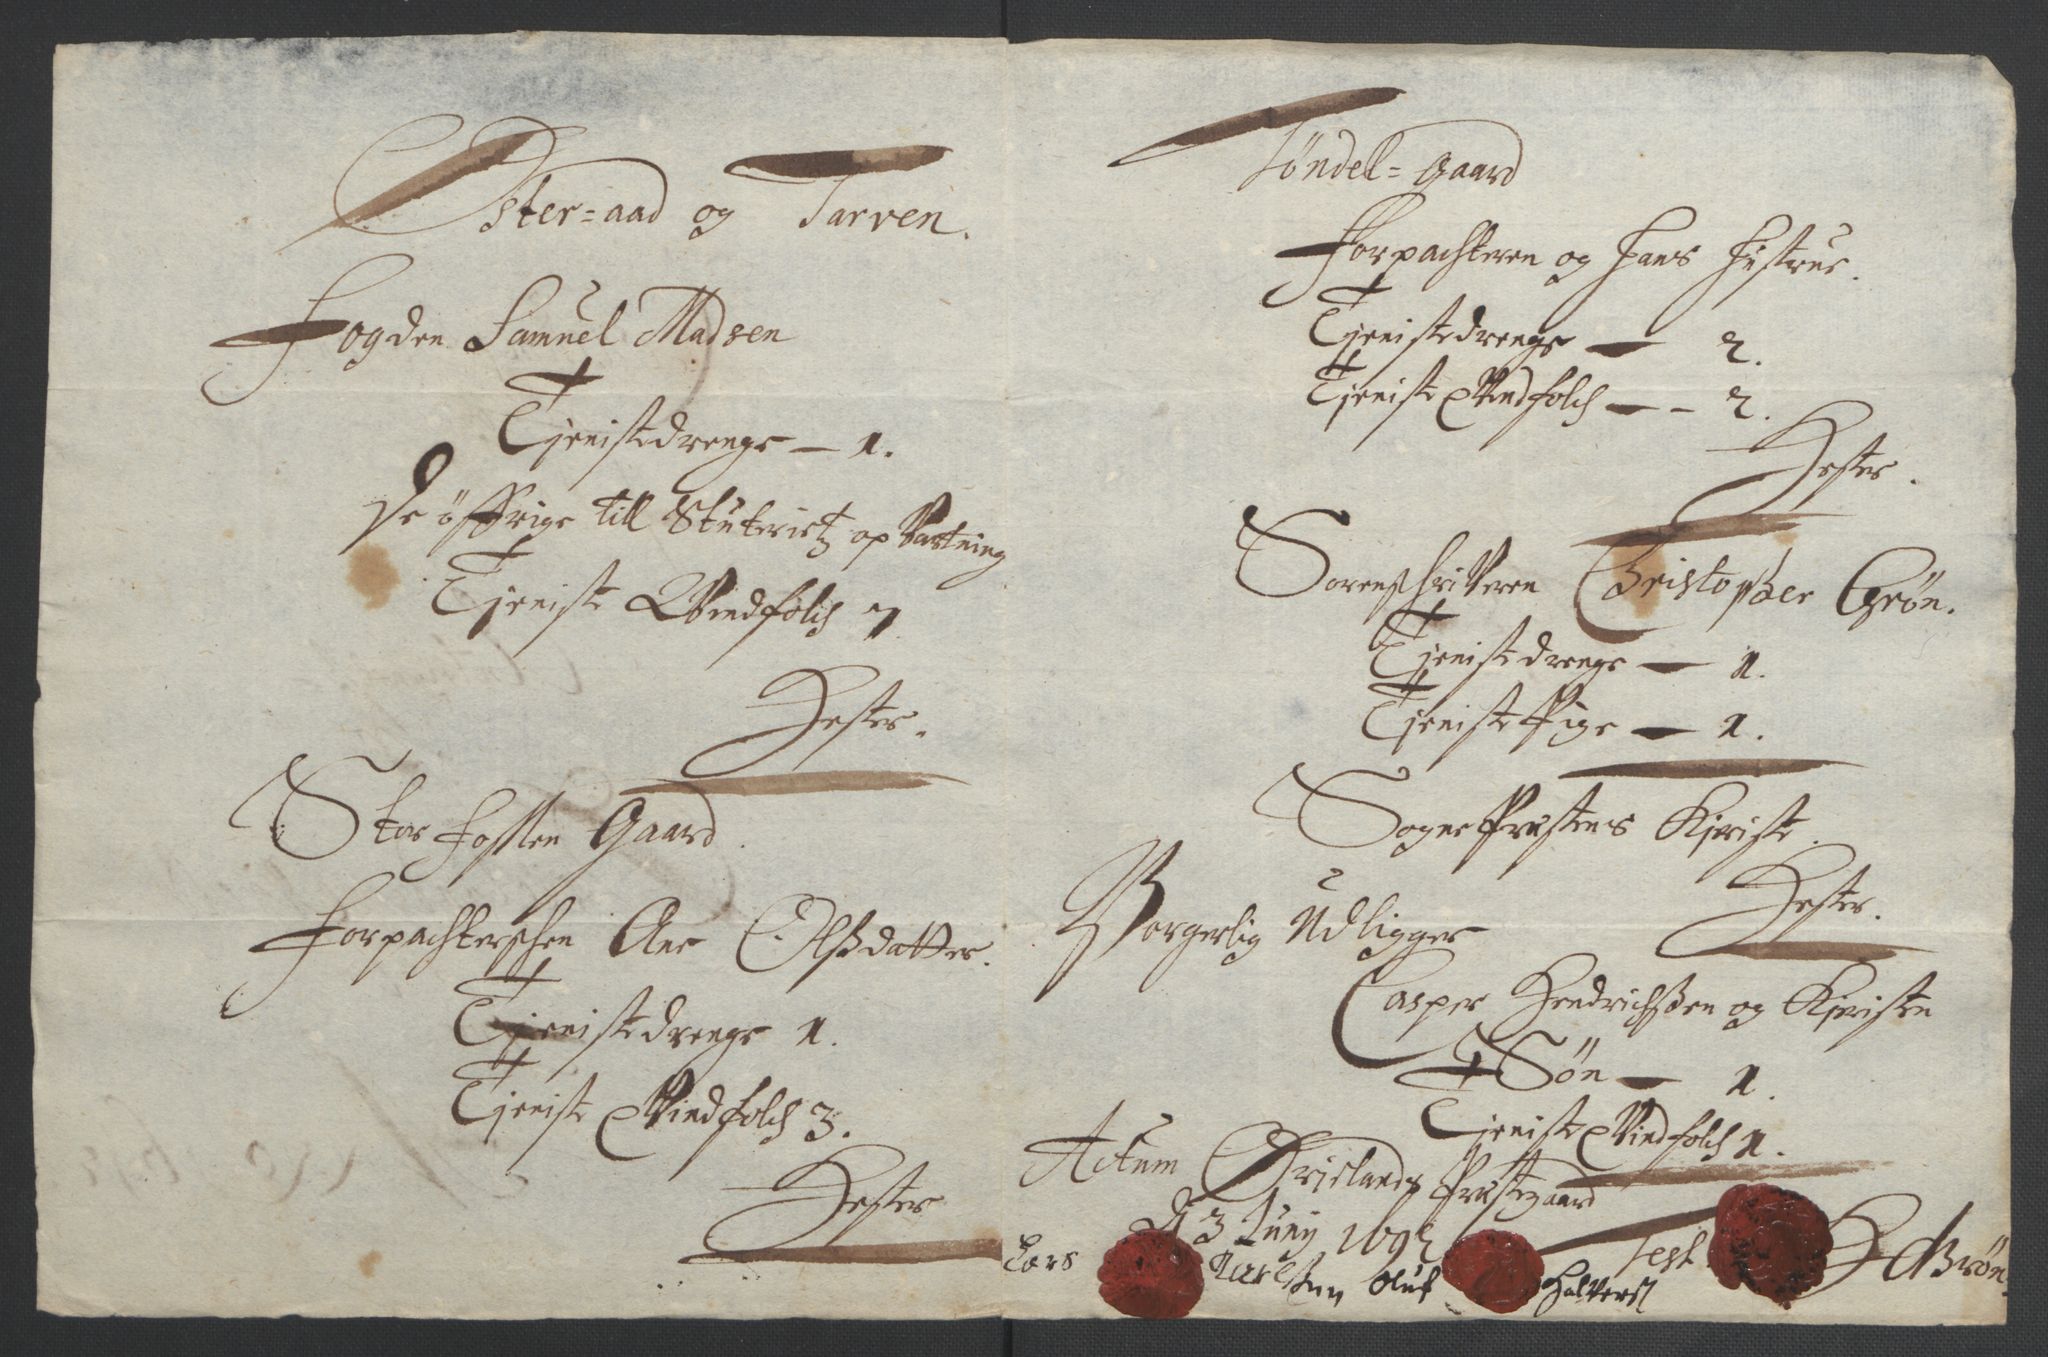 Øster=aad og Tarven.
Fogden Samuel Madsen
Tjenistedrenge — 1.
De öffrige till Stuterietz opVartning
Tjeniste Qvindfolch 7
Hester.
Stor Fosten Gaard.
Forpachterschen Ane Olsdatter.
Tjenistedrenge 1.
Tjeniste Qvindfolch 3.
Hester
Töndel=gaard
Forpachteren og Hans Hustrue.
Tjenistedrenge — 2.
Tjeniste Qvindfolch — - 2.
Hester.
Sorenschrifveren Christopher Grön.
Tjenistedrenge — 1.
Tjeniste Pige — 1.
Sogne Prestens Kjeriste.
Hester.
Borgerlig Udligger
Casper Hendrichsen og Kjeristen
Sön — 1.
Tjeniste Qvindfolch 1.
Actum Ørielands Prestegaard
d 3 Juny 169
Lars Oluf Test